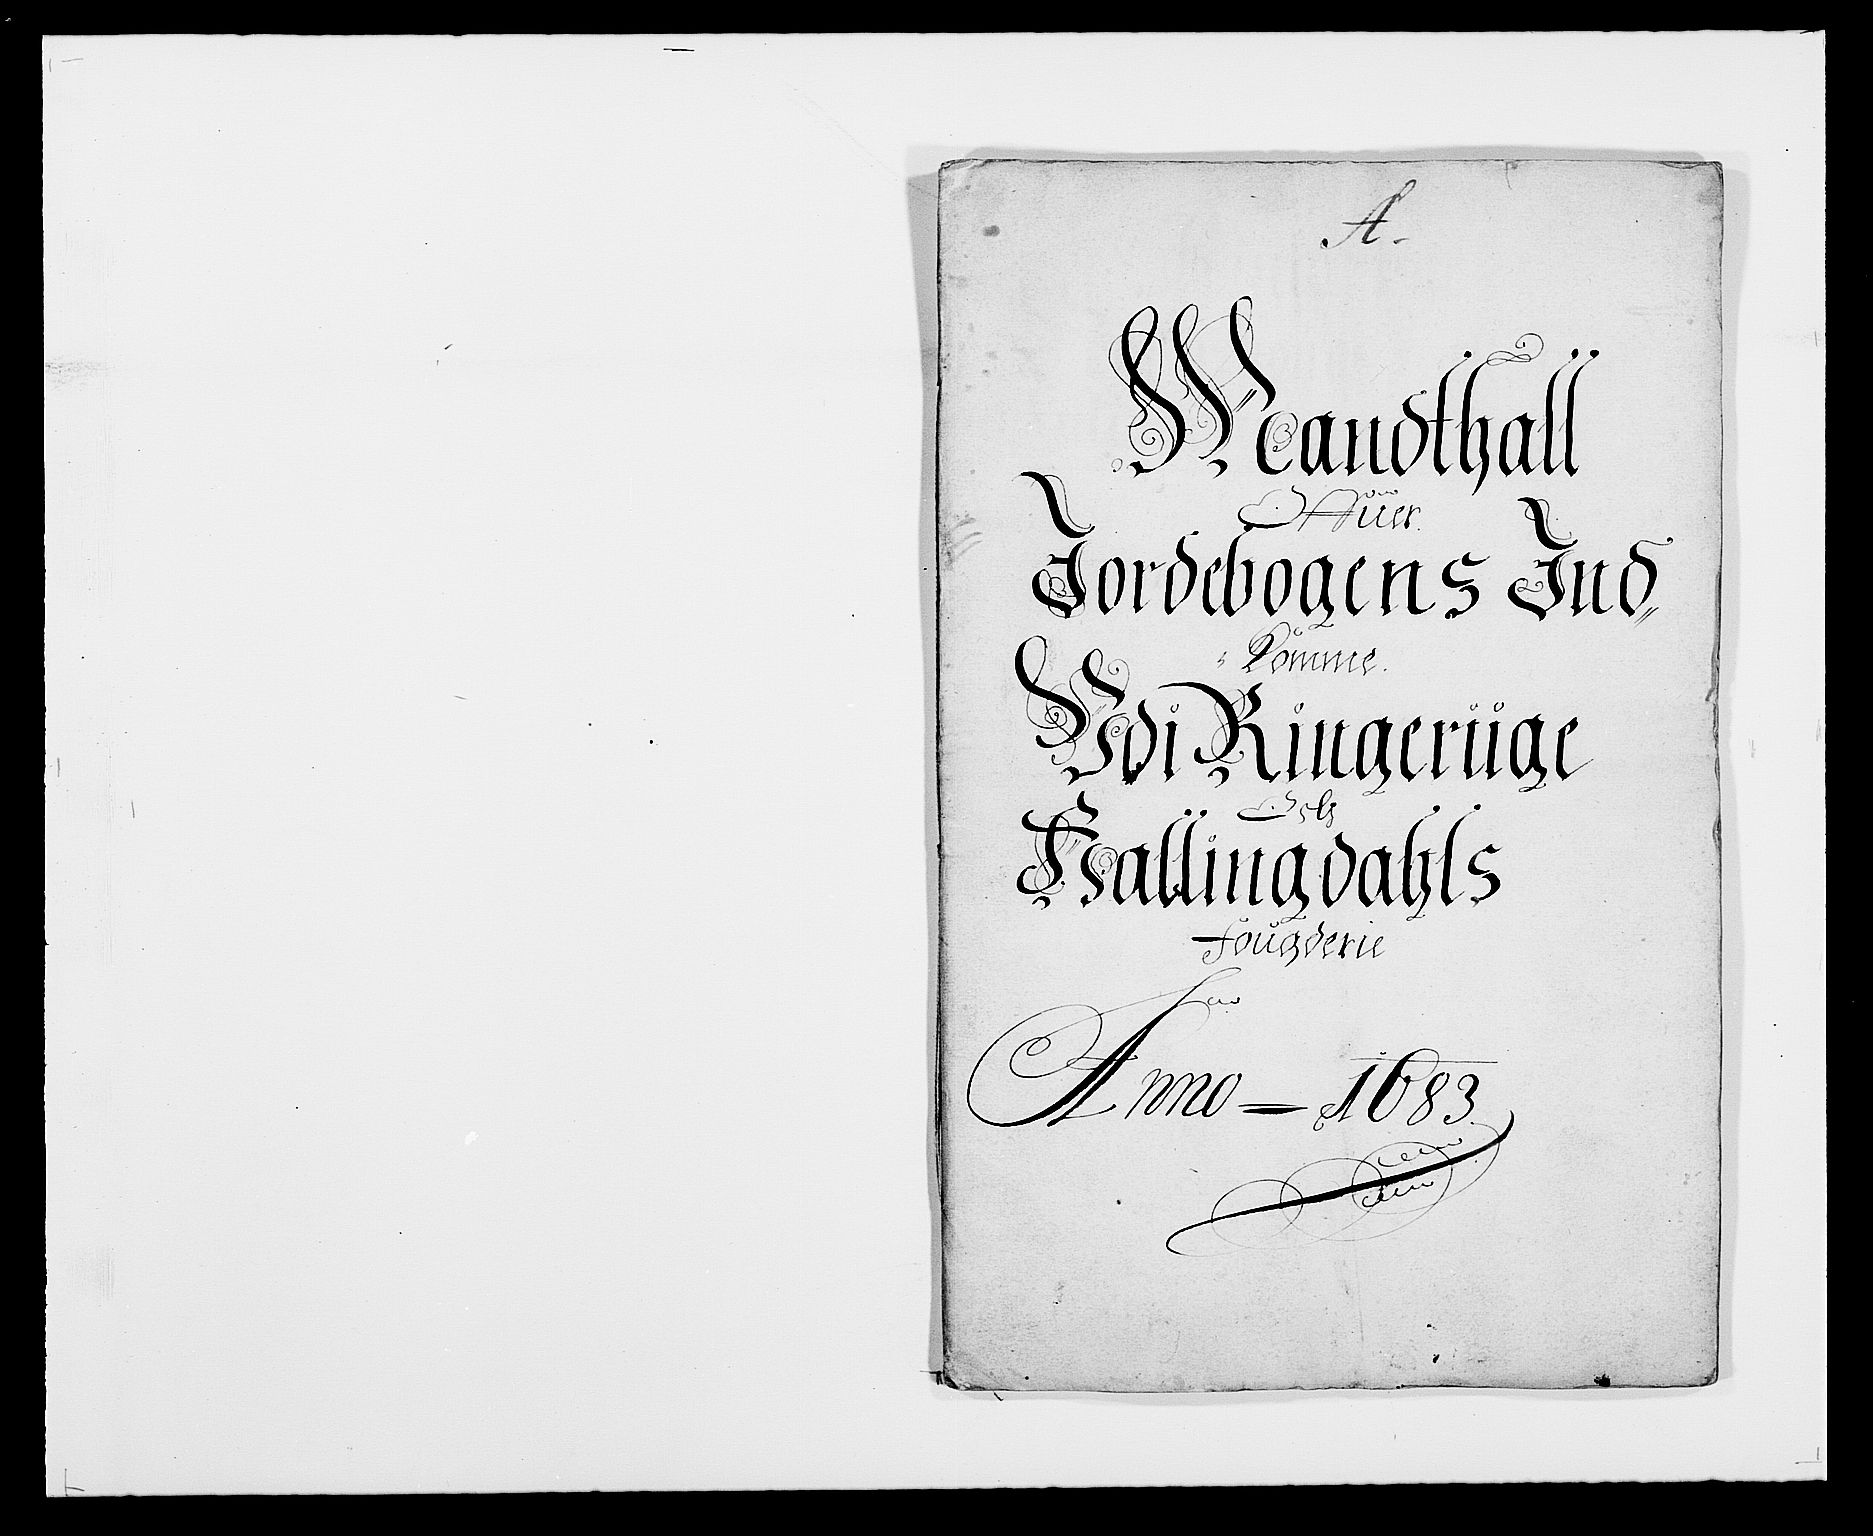 A.
Mandthall
Offuer
Jordebogens Ind„
Komme.
Udi Ringeriige
Och
Hallingdahls
Fougderie
Anno = 1683.